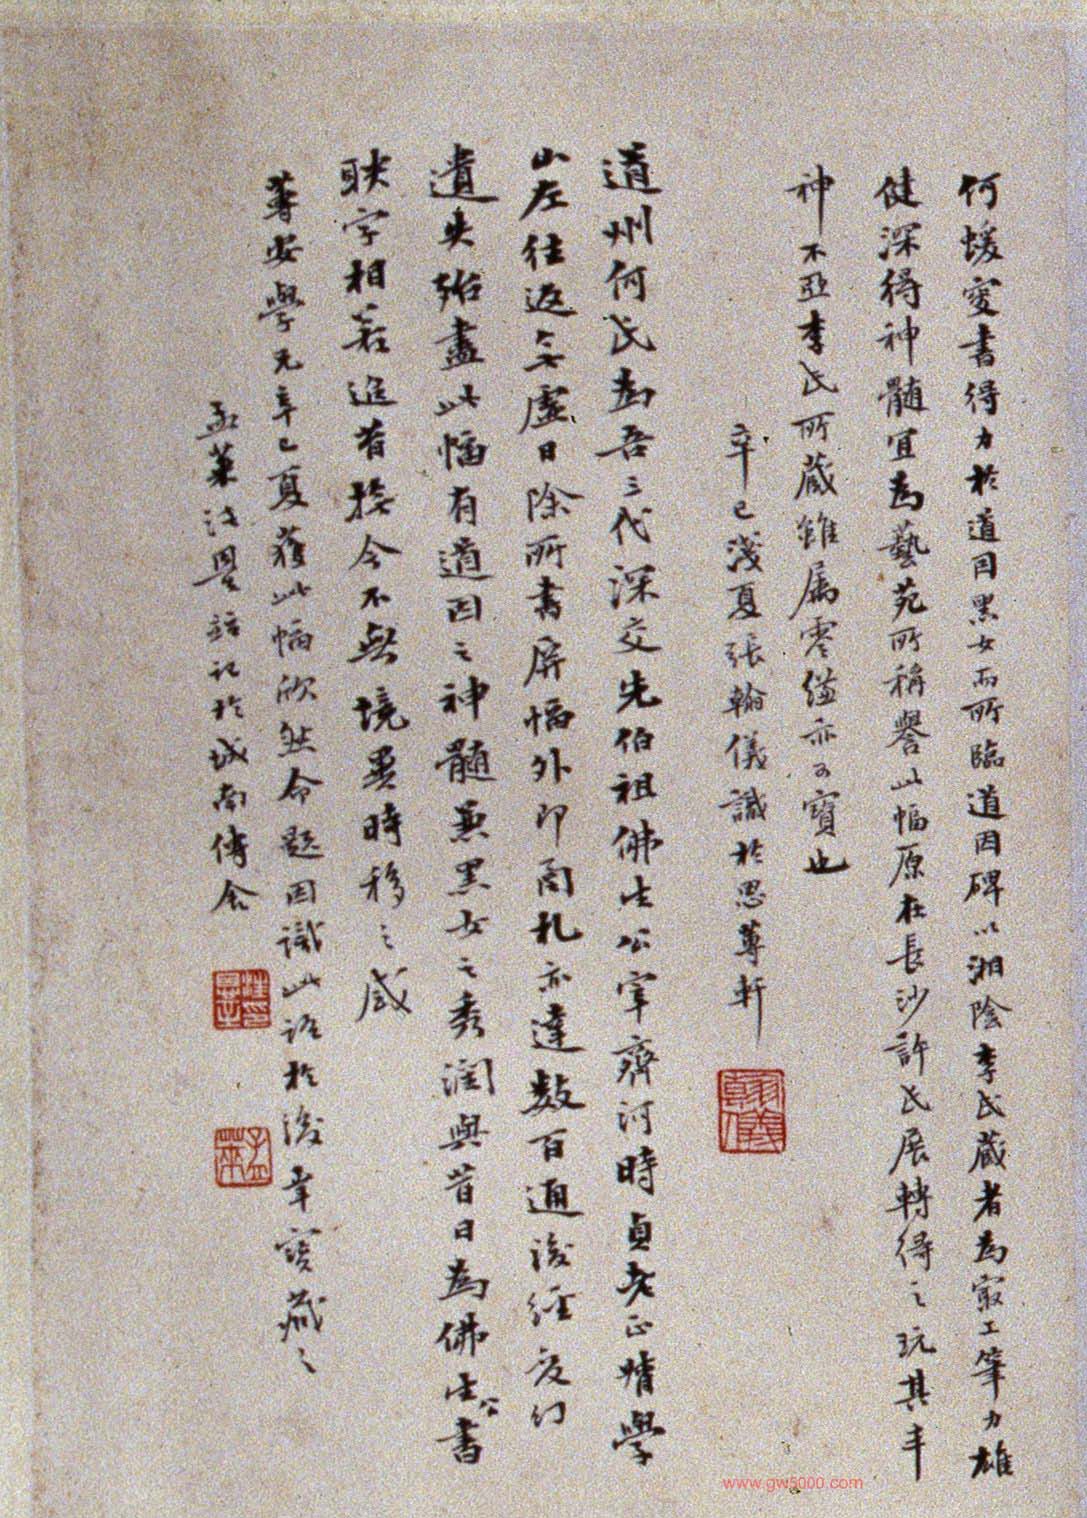 何媛叟書得力於道因黑女而所臨道因碑以湘陰李氏藏者為最工筆力雄
健深得神髓宜為藝苑所稱譽此幅原在長沙許氏展轉得之玩其丰
神不亞李氏所藏雖属零縑亦可寶也
辛巳淺夏張翰儀識於思蓴軒
翰儀
道州何氏為吾三代深交先伯祖佛生公宰齊河時貞老正督學
山左往返無虛日除所書屏幅外即函札亦達數百通後經變幻
遺失殆盡此幅有道因之神髓兼黑女之秀潤與昔日為佛生公書
聯字相若追昔撫今不無境異時移之感
蓴安學兄辛巳夏獲此幅欣然命題因識此語於後幸寶藏之
孟萊汪 記於城南傳舍
孟萊
www.gw5000.com